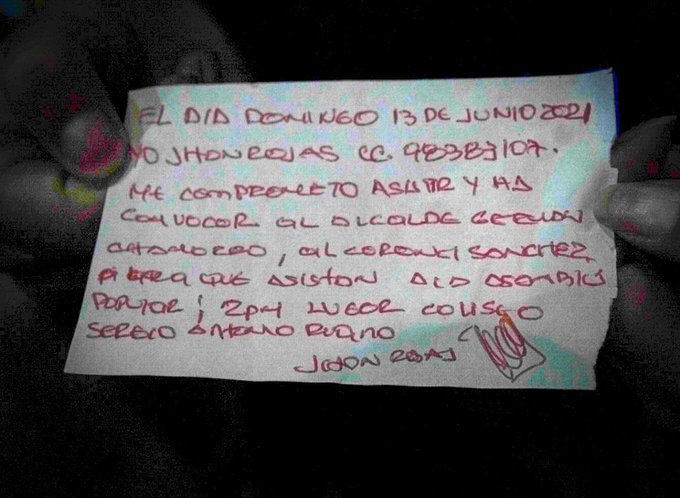 EL DIA DOMINGO 13 DE JUNIO 2021
YO JHON ROJAS CC. 98383107.
ME COMPROMETO ASISTIR Y HA
CONVOCAR AL ALCALDE GERMAN
CHAMORRO, AL CORONEL SANCHEZ,
PARA QUE ASISTAN A LA ASAMBLEA
POPULAR; 2PM LUGAR COLISEO
SERGIO ANTONIO RUANO
JHON ROJAS